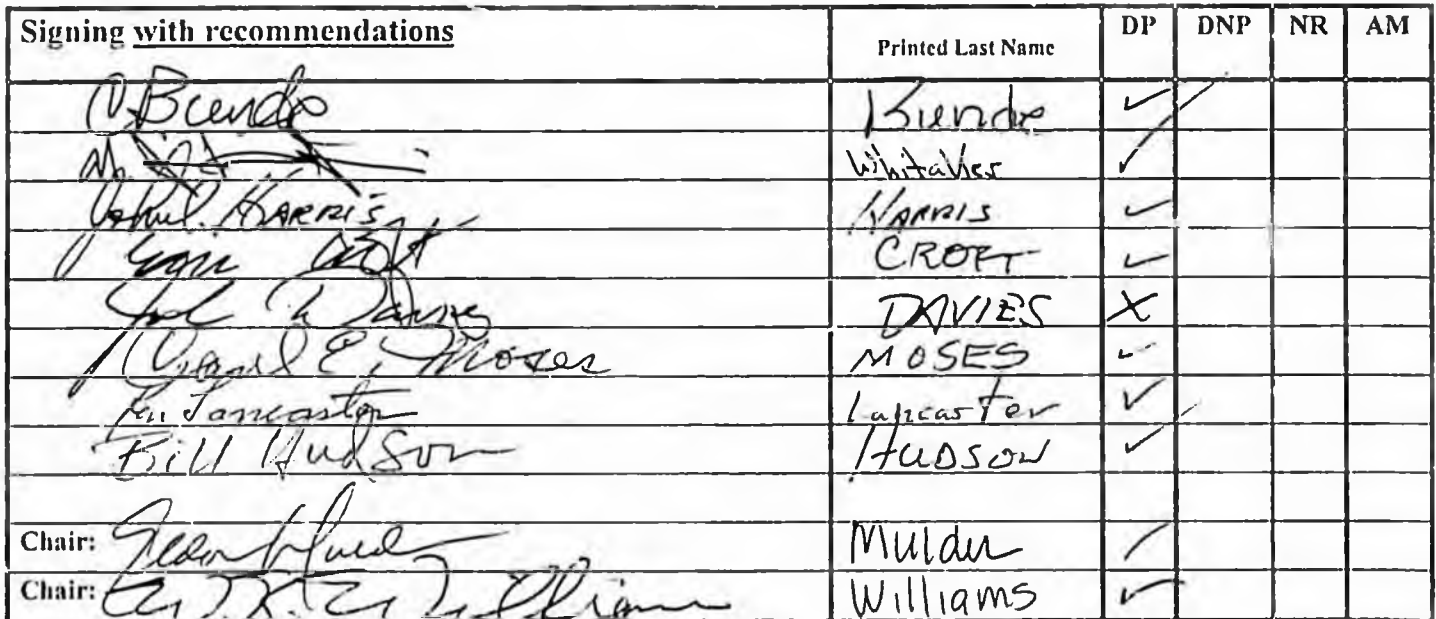 Signing with recommendations Printed Last Name DP DNP NR AM
Bunde Bunde ✓
Whitaker ✓
Harris HARRIS ✓
Croft CROFT ✓
Davies DAVIES X
E. Moses MOSES ✓
Lancaster Lancaster ✓
Bill Hudson HUDSON ✓
Chair: Mulder /
Chair: Williams Williams ✓